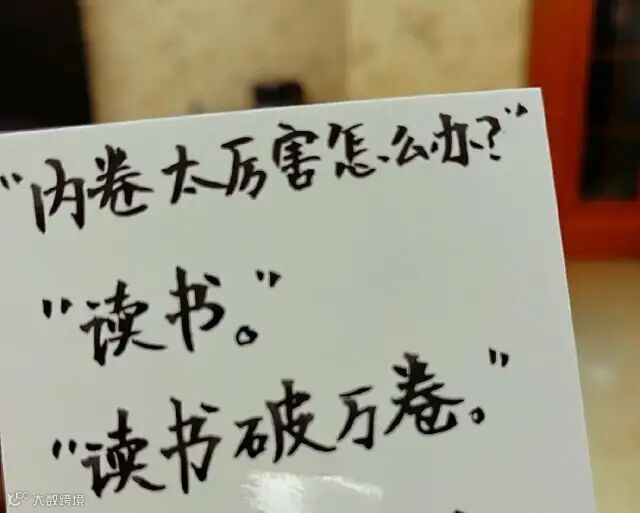 "内卷太厉害怎么办?"
"读书。"
"读书破万卷。"
大数跨境